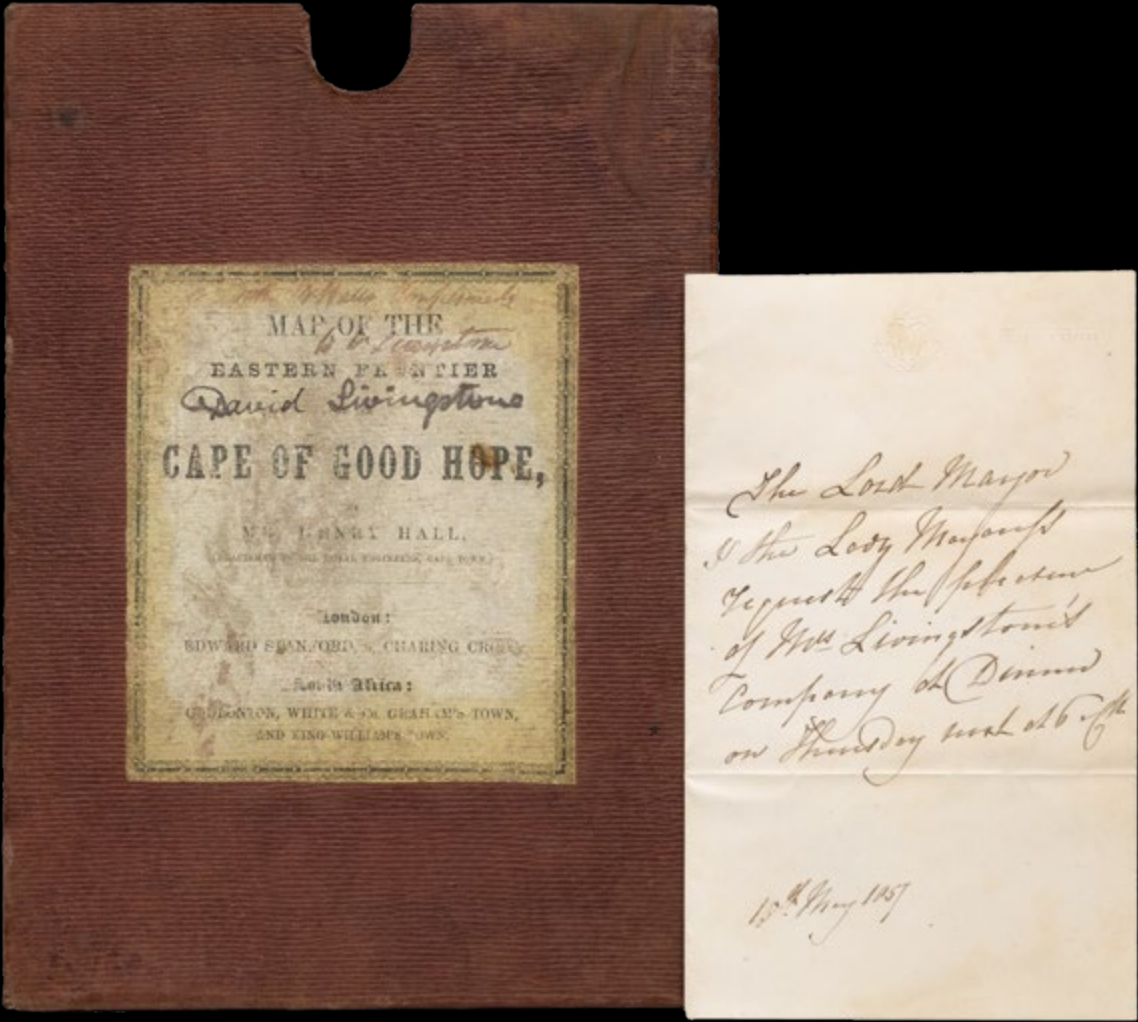 MAP OF THE
Livingstone
EASTERN FRONTIER
David Livingstone
CAPE OF GOOD HOPE,
MR. HENRY HALL,
ROYAL ENGINEERS, CAPE TOWN.)
London:
EDWARD STANFORD, 6, CHARING CROSS
South Africa:
GODLONTON, WHITE & Co. GRAHAM'S TOWN,
AND KING WILLIAM'S TOWN.
The Lord Mayor
& the Lady Mayoress
request the pleasure
of Mrs Livingstone's
Company at Dinner
on Thursday next at 6
15th May 1857